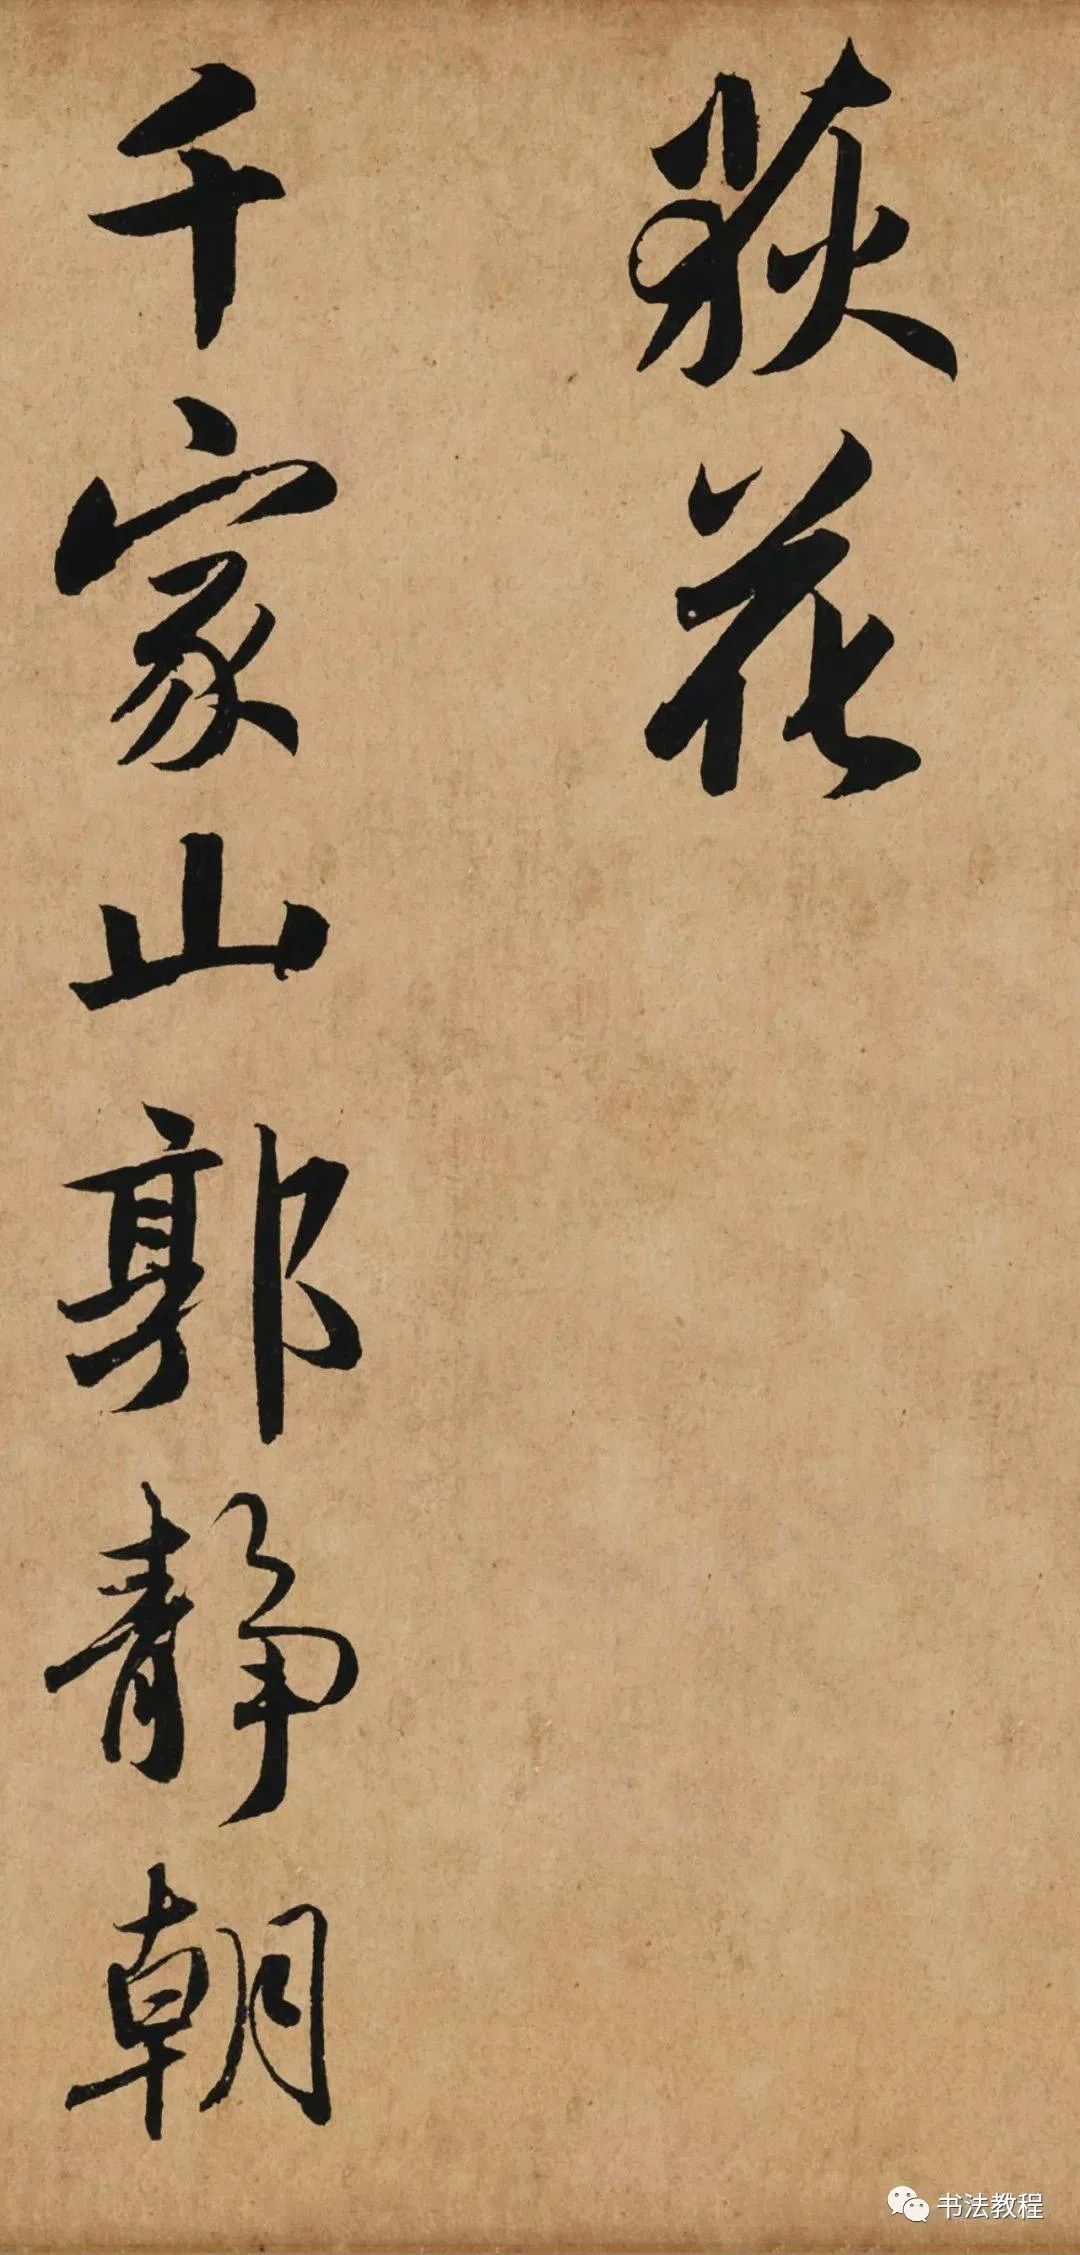 荻花
千家山郭静朝
书法教程